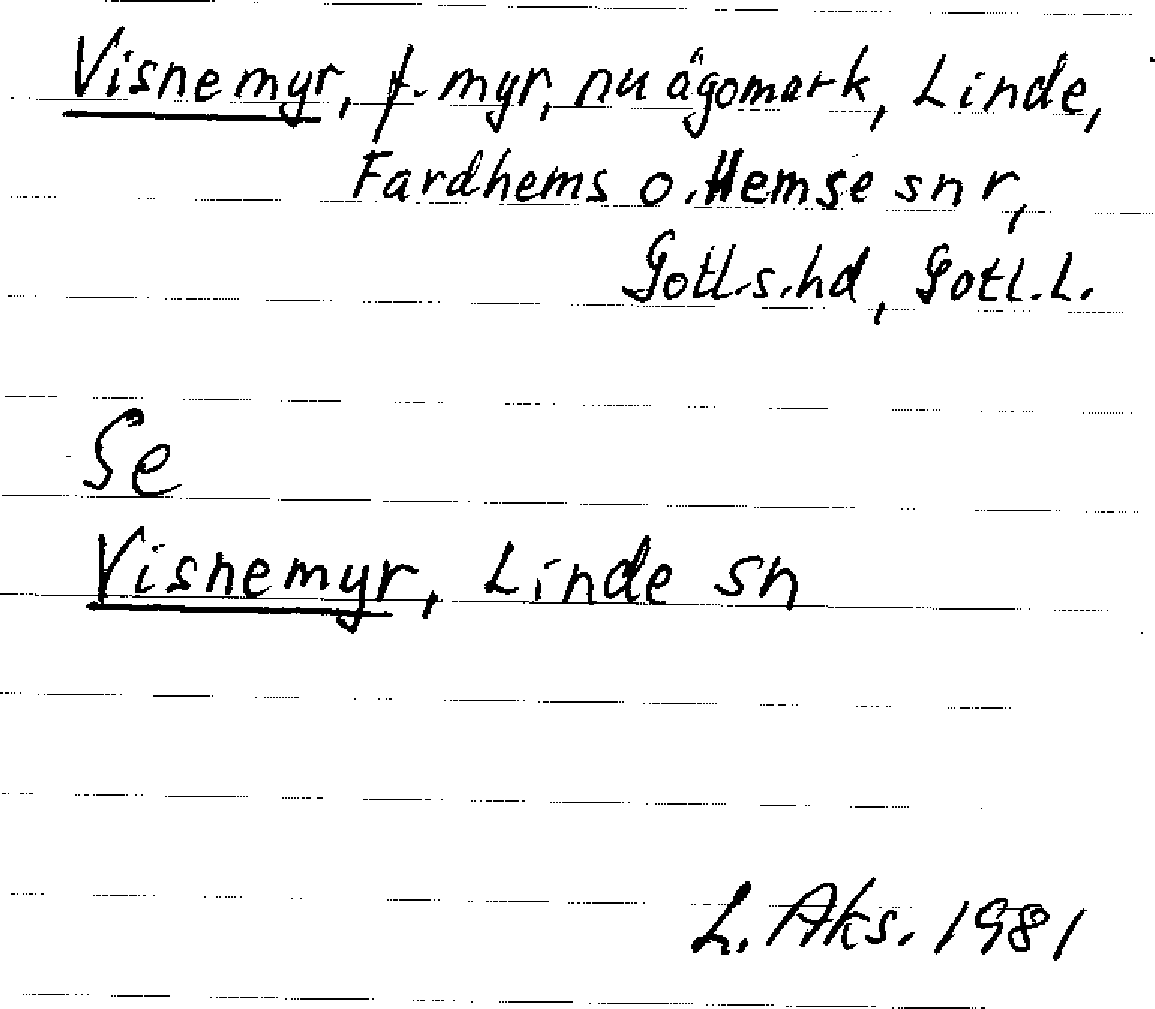 Visnemyr, f. myr, nu ägomark, Linde,
Fardhems o. Hemse snr,
Gotl.s.hd, Gotl.l.
Se
Visnemyr, Linde sn
L. Aks. 1981